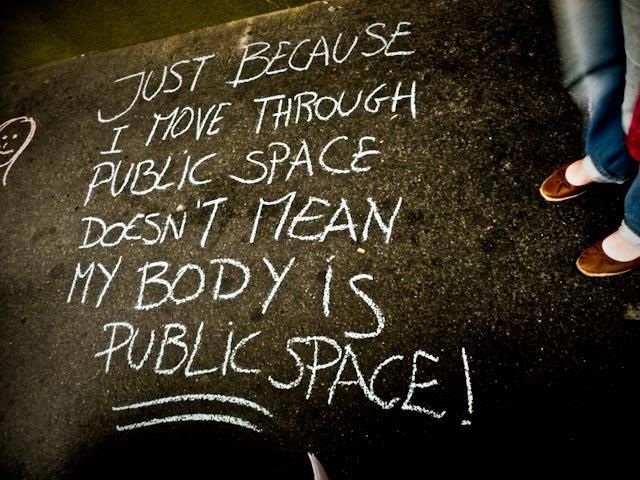 JUST BECAUSE
I MOVE THROUGH
PUBLIC SPACE
DOESN'T MEAN
MY BODY IS
PUBLIC SPACE!